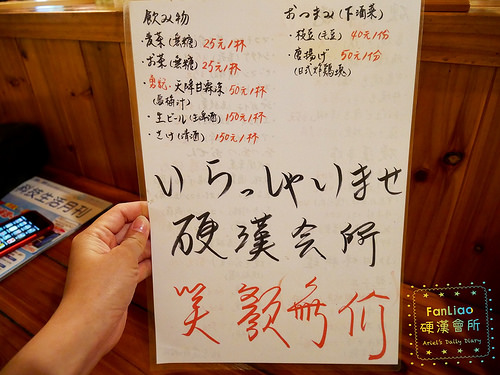 飲み物
・麦茶(無糖) 25元1杯
・お茶(無糖) 25元1杯
天降甘霖茶 50元1杯
・生ビール(生啤酒) 150元1杯
・さけ(清酒) 150元1杯
おつまみ(下酒菜)
・枝豆(毛豆) 40元1份
・唐揚げ 50元1份
(日式炸鷄塊)
いらっしゃいませ
硬漢会所
笑顏無价
科技生活月刊
FanLiao
硬漢會所
Ariel's Daily Diary